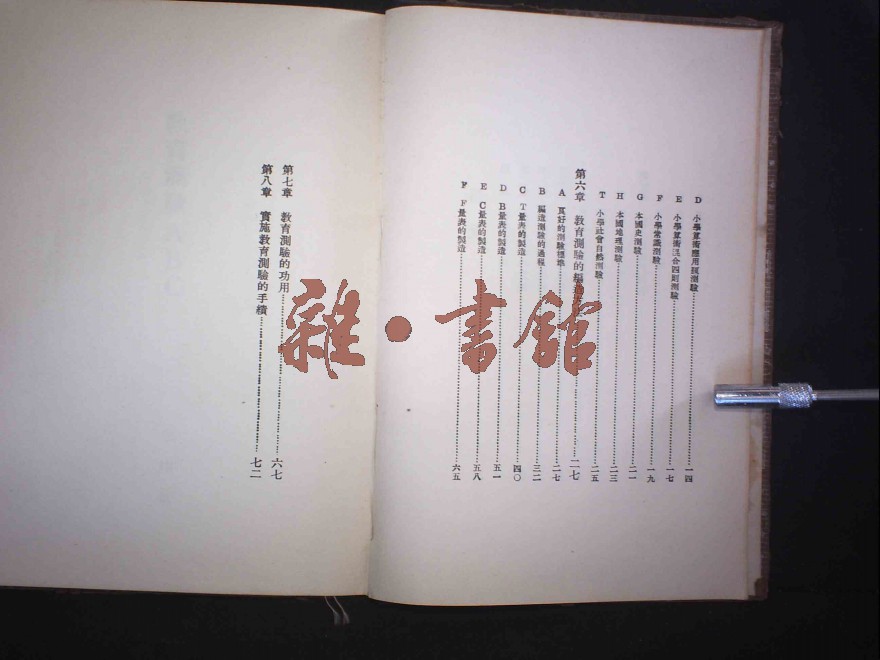 D 小學算術應用題測驗……一四
E 小學算術混合四則測驗……一七
F 小學常識測驗……一九
G 本國史測驗……二一
H 本國地理測驗……二三
T 小學社會自然測驗……二五
第六章 教育測驗的編……二七
A 良好的測驗標準……二七
B 編造測驗的過程……三二
C T量表的製造……四〇
D B量表的製造……五一
E C量表的製造……五八
F F量表的製造……六五
第七章 教育測驗的功用……六七
第八章 實施教育測驗的手續……七二
雜·書館